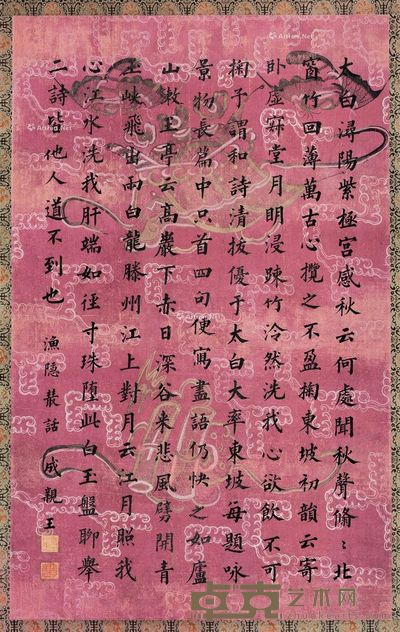 太白潯陽紫極宮感秋云何處聞秋聲翛〻北
窗竹回薄萬古心攬之不盈掬東坡初韻云寄
臥虛寂堂月明浸疎竹泠然洗我心欲飲不可
掬予謂和詩清拔優于太白大率東坡每題咏
景物長篇中只首四句便寫盡語仍快之如廬
山漱玉亭云高巖下赤日深谷來悲風劈開青
玉峽飛出兩白龍滕州江上對月云江月照我
心江水洗我肝端如徑寸珠墮此白玉盤聊舉
二詩皆他人道不到也 漁隱叢話 成親王
Artron.Net
艺术网